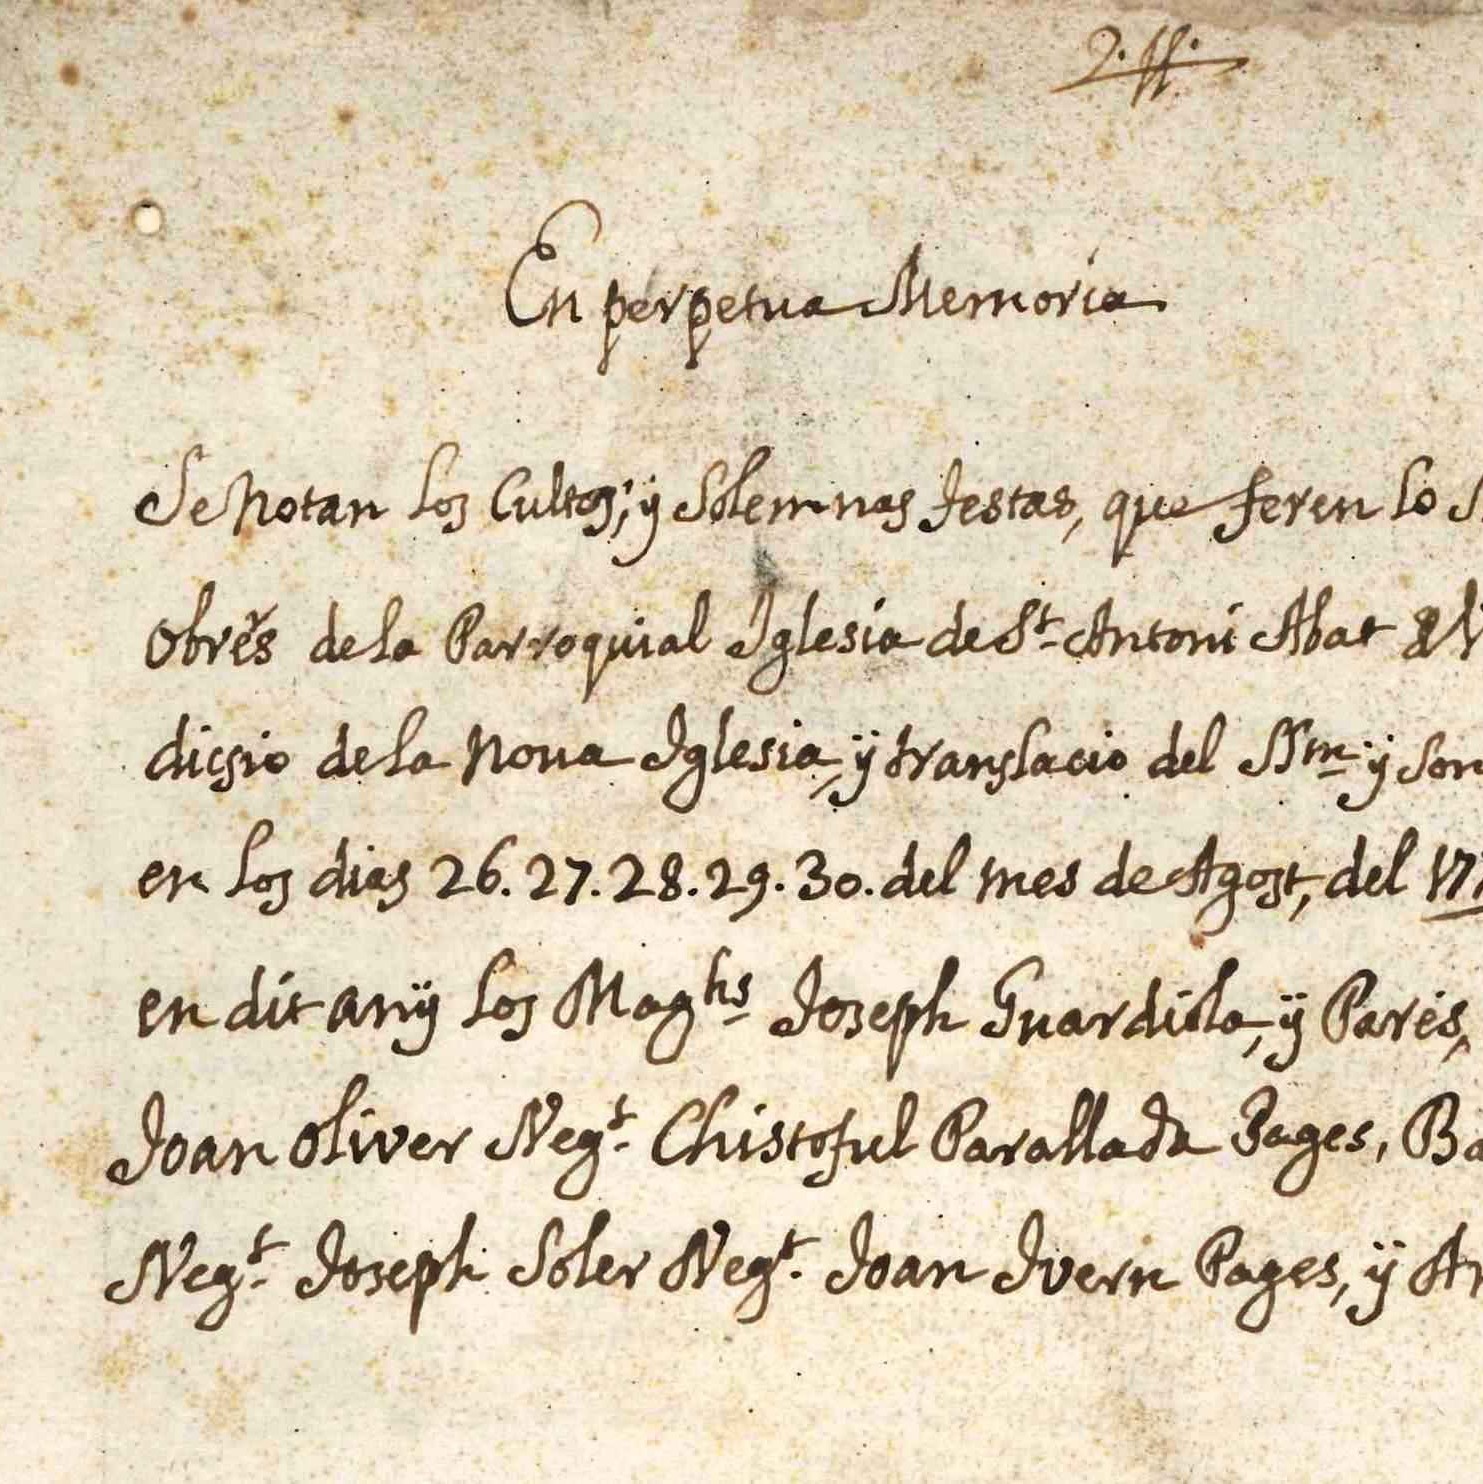 En perpetua Memoria
Se Notan los Cultos, ÿ Solemnas festas, que feren lo
Obrers de la Parroquial Iglesia de St. Antoni Abat
dicsio de la Nova Iglesia, ÿ translacio del SSm. ÿ Son
en los dias 26. 27. 28. 29. 30. del mes de Agost, del 177
en dit anÿ los Maghs Joseph Guardiola, ÿ Parés,
Joan Oliver Negt. Chistoful Parallada Pages, Ba
Negt. Joseph Soler Negt. Joan Ivern Pages, ÿ An